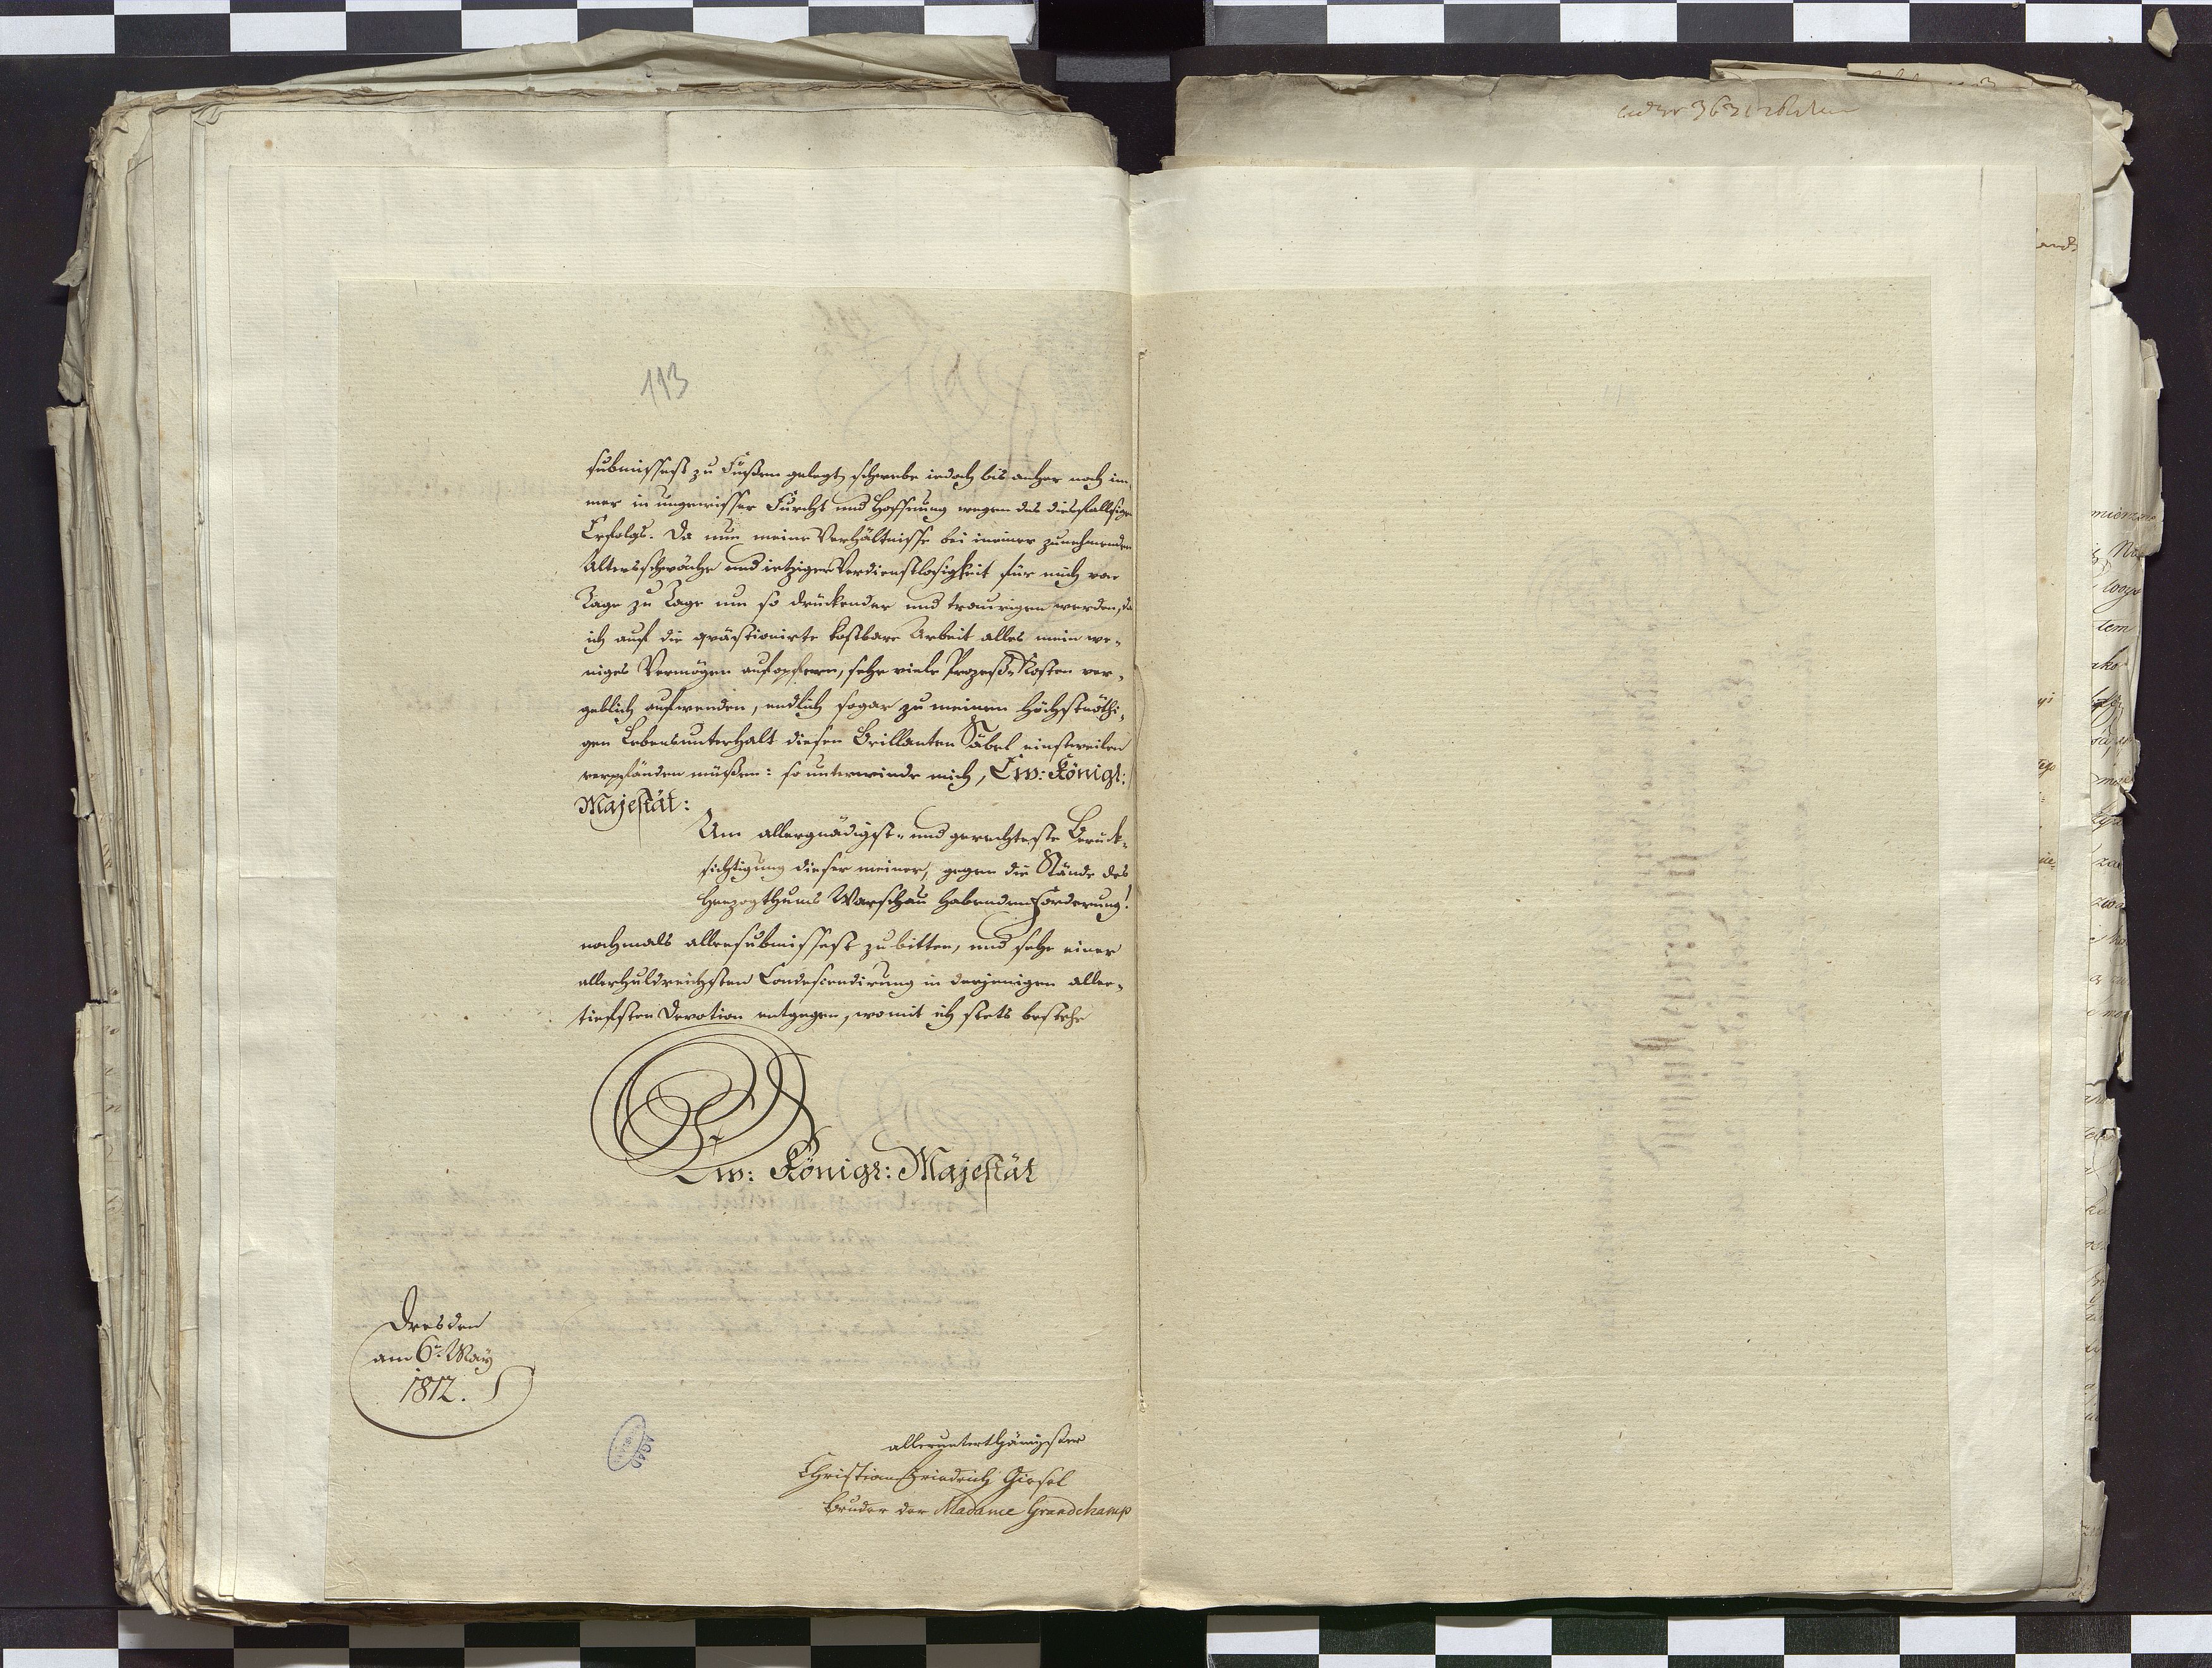 113
submissest zu Füßen gelegt, schwebe iedoch bis anher noch im-
mer in ungewisser Furcht und Hoffnung wegen des diesfallsigen
Erfolgs. Da nun meine Verhältnisse bei meiner zunehmenden
Altersschwäche und ietziger Verdienstlosigkeit für mich von
Tage zu Tage um so drückender und traurigen werden, da
ich auf die quästionirte kostbare Arbeit alles mein we-
niges Vermögen aufopfern, sehr viele Prozeß-Kosten ver-
geblich aufwenden, endlich sogar zu meinem höchstnöthi-
gen Lebensunterhalt diesen Brillanten Säbel einstweilen
verpfänden müßen: so unterwinde mich, Ew: Königl:
Majestät:
Um allergnädigst- und gerechteste Berück-
sichtigung dieser meiner, gegen die Stände des
Herzogthums Warschau habenden Forderung!
nochmals allersubmissest zu bitten, und sehe einer
allerhuldreichsten Condescendirung in derjenigen aller-
tiefsten Devotion entgegen, womit ich stets bestehe
Ew: Königl: Majestät
Dresden
am 6n May
1812.
allerunterthänigster
Christian Friedrich Giesel
Bruder der Madame Grandchamp
AGAD